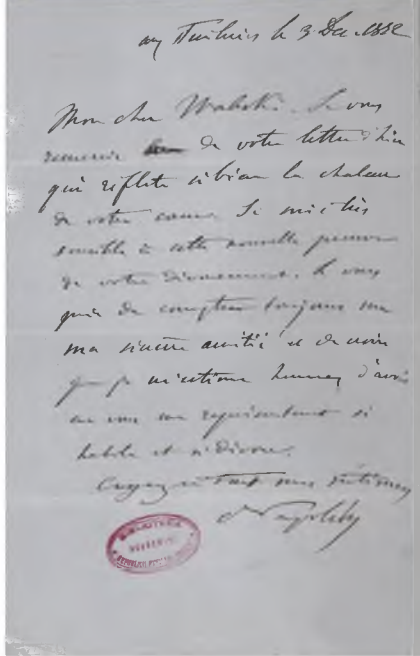 aux Tuileries le 3 Dec. 1852
Mon cher Walewski. Je vous
remercie de votre lettre d'hier
qui reflete si bien la chaleur
de votre cœur. Je suis très
sensible à cette nouvelle preuve
de votre dévouement. Je vous
prie de compter toujours sur
ma sincère amitié et de croire
que je m'estime heureux d'avoir
en vous un représentant si
habile et si dévoué.
Croyez à tous mes sentimens
Napoléon
BIBLIOTECA